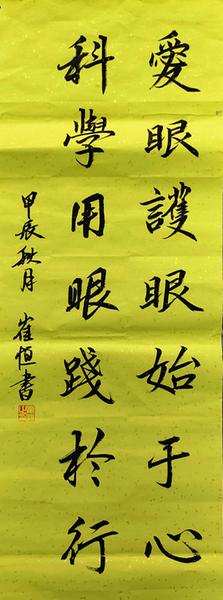 愛眼護眼始于心
科學用眼踐於行
甲辰秋月 崔恒書